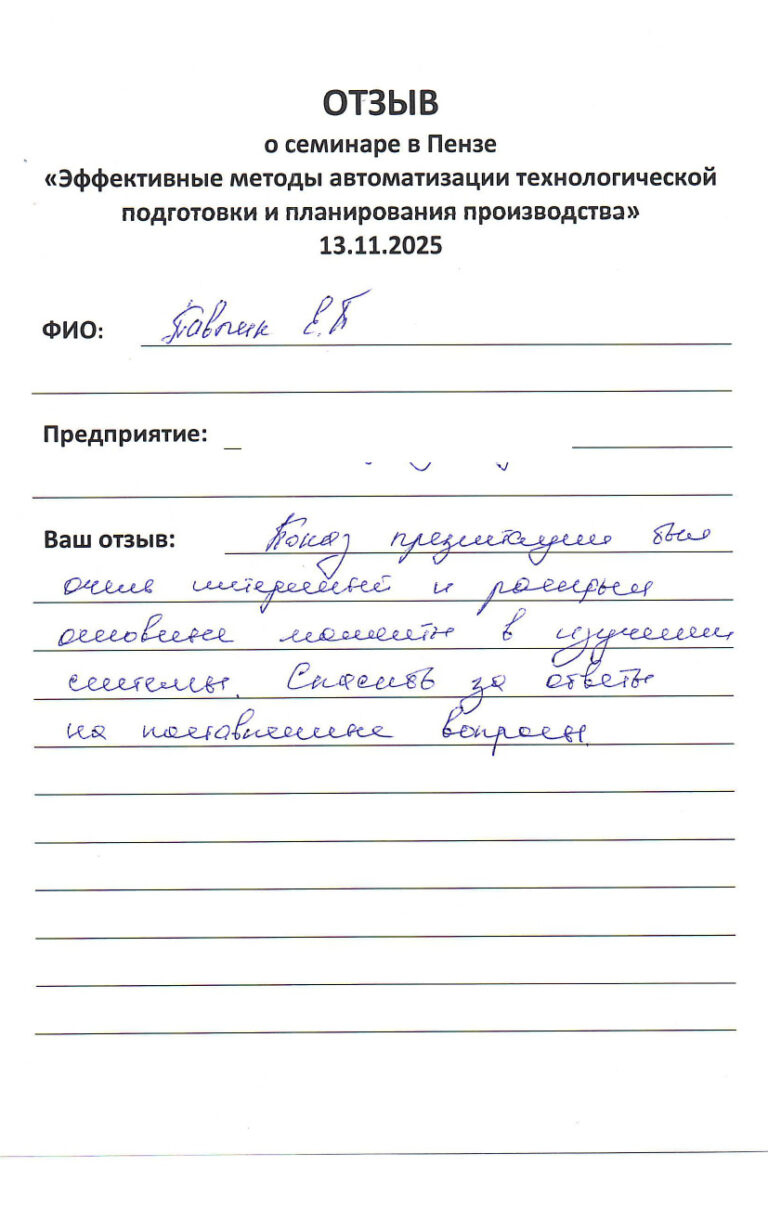 ОТЗЫВ
о семинаре в Пензе
«Эффективные методы автоматизации технологической
подготовки и планирования производства»
13.11.2025
ФИО: Е.П
Предприятие:
Ваш отзыв: Показ презентации был
очень интересный и раскрыл
основные моменты в изучении
системы. Спасибо за ответы
на поставленные вопросы.